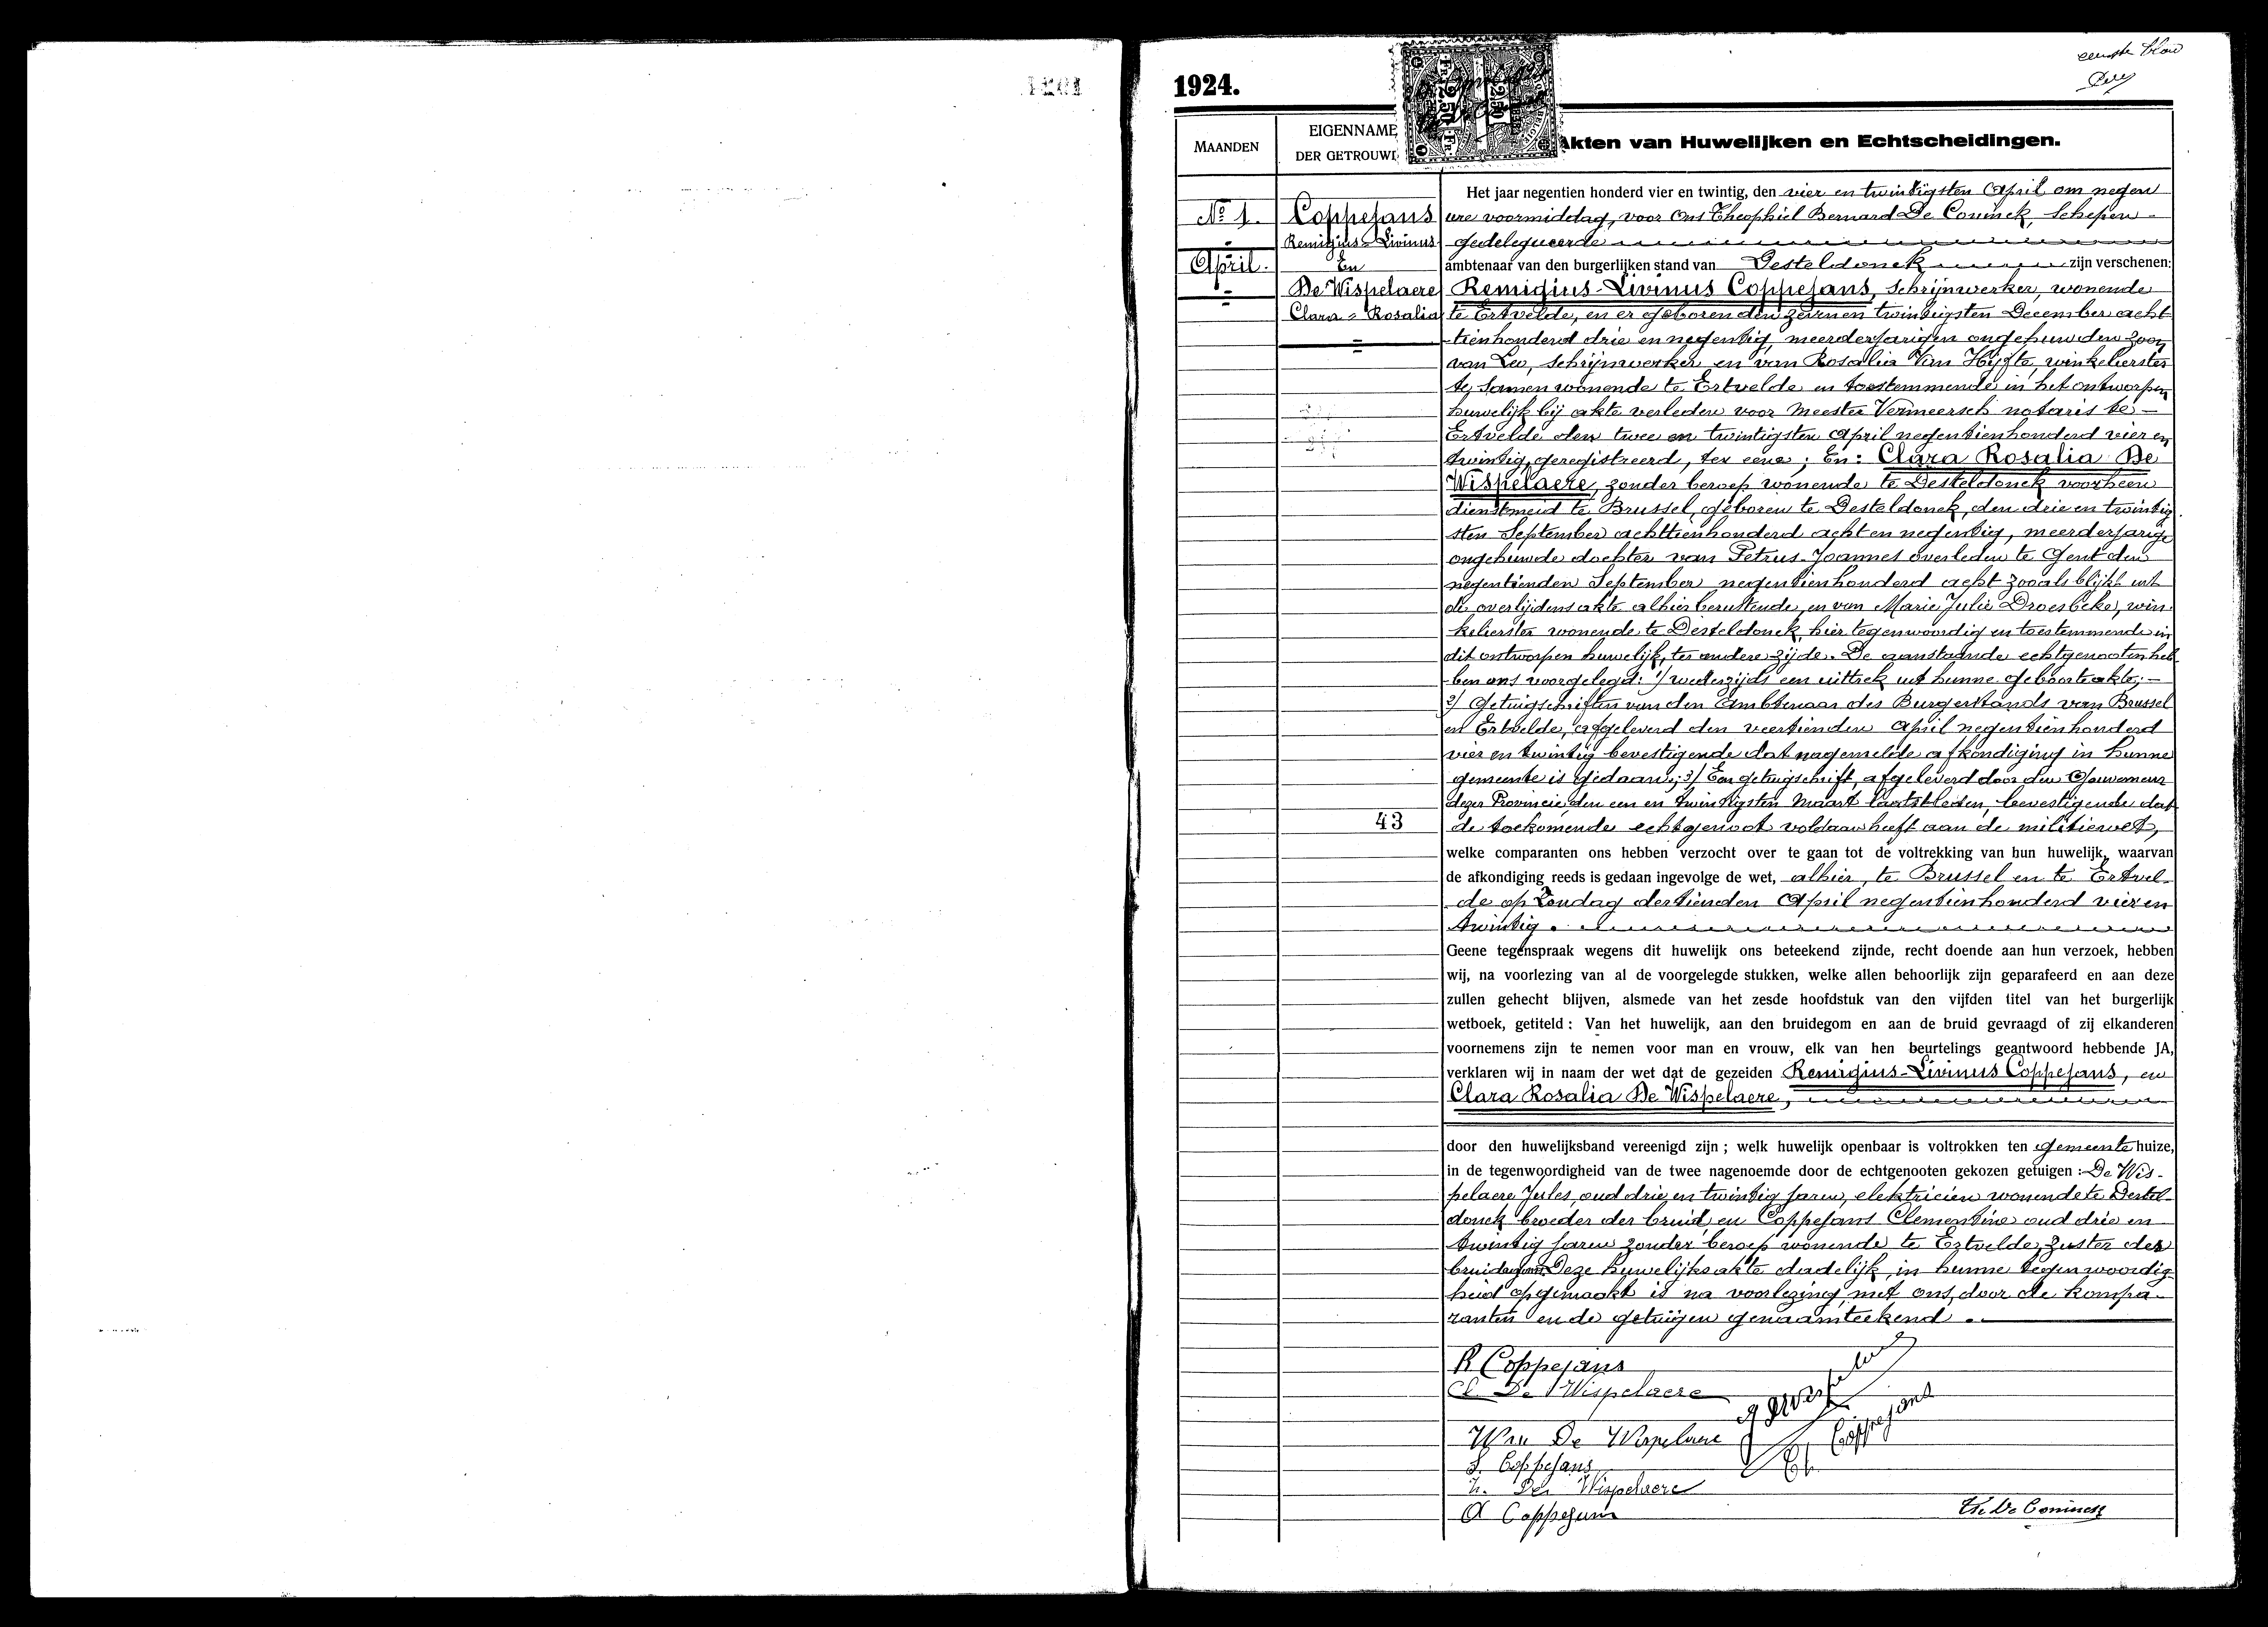 eerste blad
1924.
MAANDEN
EIGENNAME
DER GETROUWD
Akten van Huwelijken en Echtscheidingen.
Nº 1.
April.
Coppejans
Remigius-Livinus
En
De Wispelaere
Clara-Rosalia
43
Het jaar negentien honderd vier en twintig, den vier en twintigsten April om negen
ure voormiddag, voor Ons Theophiel Bernard De Coninck, Schepen
gedelegueerde
ambtenaar van den burgerlijken stand van Desteldonck zijn verschenen:
Remigius-Livinus Coppejans, schrijnwerker, wonende
te Ertvelde, en er geboren den zeven en twintigsten December acht
tienhonderd drie en negentig, meerderjarigen ongehuwden zoon
van Leo, schrijnwerker en van Rosalia Van Hijfte, winkelierster
te samen wonende te Ertvelde en toestemmende in het ontworpen
huwelijk bij akte verleden voor meester Vermeersch notaris te
Ertvelde den twee en twintigsten April negentienhonderd vier en
twintig, geregistreerd, ter eene; En: Clara Rosalia De
Wispelaere, zonder beroep wonende te Desteldonck voorheen
dienstmeid te Brussel, geboren te Desteldonck, den drie en twintig
sten September achttienhonderd acht en negentig, meerderjarige
ongehuwde dochter van Petrus-Joannes overleden te Gent den
negentienden September negentienhonderd acht zooals blijkt uit
de overlijdensakte alhier berustende, en van Marie Julie Droesbeke, win
kelierster wonende te Desteldonck, hier tegenwoordig en toestemmende in
dit ontworpen huwelijk, ter andere zijde. De aanstaande echtgenooten heb
ben ons voorgelegd: 1/ wederzijds een uittrek uit hunne geboorteakte;
2/ Getuigschriften van den Ambtenaar des Burgerstands van Brussel
en Ertvelde, afgeleverd den veertienden April negentienhonderd
vier en twintig bevestigende dat nagemelde afkondiging in hunne
gemeente is gedaan; 3/ Een getuigschrift, afgeleverd door den Gouverneur
dezer Provincie den een en twintigsten Maart laatstleden, bevestigende dat
de toekomende echtgenoot voldaan heeft aan de militiewet,
welke comparanten ons hebben verzocht over te gaan tot de voltrekking van hun huwelijk, waarvan
de afkondiging reeds is gedaan ingevolge de wet, alhier, te Brussel en te Ertvel-
de op Zondag dertienden April negentienhonderd vier en
twintig.
Geene tegenspraak wegens dit huwelijk ons beteekend zijnde, recht doende aan hun verzoek, hebben
wij, na voorlezing van al de voorgelegde stukken, welke allen behoorlijk zijn geparafeerd en aan deze
zullen gehecht blijven, alsmede van het zesde hoofdstuk van den vijfden titel van het burgerlijk
wetboek, getiteld : Van het huwelijk, aan den bruidegom en aan de bruid gevraagd of zij elkanderen
voornemens zijn te nemen voor man en vrouw, elk van hen beurtelings geantwoord hebbende JA,
verklaren wij in naam der wet dat de gezeiden Remigius-Livinus Coppejans, en
Clara Rosalia De Wispelaere,
door den huwelijksband vereenigd zijn ; welk huwelijk openbaar is voltrokken ten gemeentehuize,
in de tegenwoordigheid van de twee nagenoemde door de echtgenooten gekozen getuigen : De Wis-
pelaere Jules, oud drie en twintig jaren, elektricien wonende te Destel-
donck broeder der bruid, en Coppejans Clementine oud drie en
twintig jaren zonder beroep wonende te Ertvelde, zuster des
bruidegoms. Deze huwelijksakte dadelijk, in hunne tegenwoordig
heid opgemaakt is na voorlezing, met ons, door de kompa-
ranten en de getuigen genaamteekend.
R Coppejans
Cl De Wispelaere
Wwe De Wispelaere
Cl. Coppejans
L. Coppejans
De Wispelaere
A Coppejans
Th. De Coninck